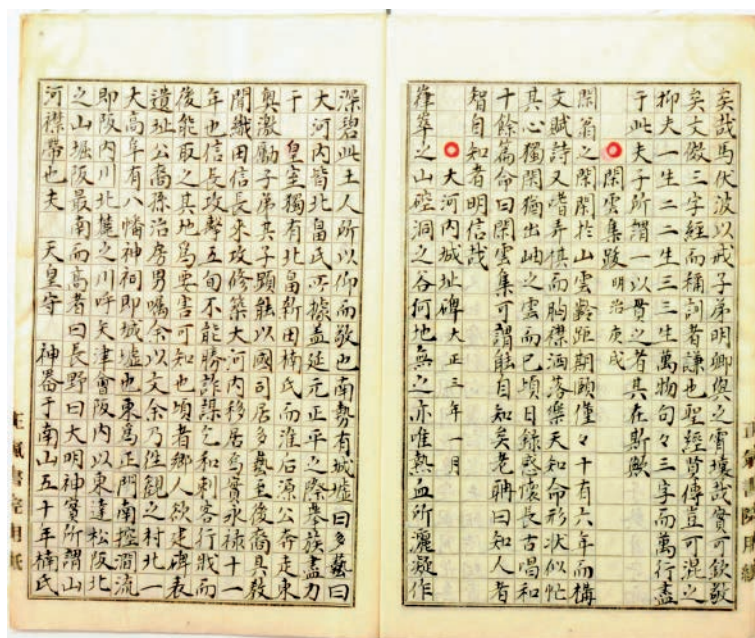 矣哉馬伏波以戒子弟明卿與之霄壤哉實可欽敬
矣文倣三字經而稱訓者謙也聖經賢傳豈可混之
抑夫一生二二生三三生萬物句々三字而萬行盡
于此夫子所謂一以貫之者其在斯歟
閑雲集跋 明治庚戌
閑翁之閑閑於山雲齡距期頤僅々十有六年而構
文賦詩又嗜弄棋而胸襟洒落樂天知命形狀似忙
其心獨閑猶出岫之雲而已頃日錄慈懷長古唱和
十餘篇命曰閑雲集可謂能自知矣老聃曰知人者
智自知者明信哉
大河内城址碑 大正三年一月
嵂崒之山硿洞之谷何地無之亦唯熱血所灑凝作
深碧此土人所以仰而敬也南勢有城墟曰多藝曰
大河内皆北畠氏所據蓋延元正平之際舉族盡力
于 皇室獨有北畠新田楠氏而准后源公奔走東
奥激勵子弟其子顕能以國司居多藝至後裔具教
聞織田信長來攻修築大河内移居焉實永禄十一
年也信長攻擊五旬不能勝詐謀乞和刺客行戕而
後能取之其地為要害可知也頃者鄉人欲建碑表
遺址公裔孫治房男囑余以文余乃徃觀之村北一
大高阜有八幡神祠即城墟也東為正門南控澗流
即阪内川北麓之川呼矢津會阪内以東達松阪北
之山堀阪最南而高者曰長野曰大明神實所謂山
河襟帶也夫 天皇守 神器于南山五十年楠氏
正氣書院用紙